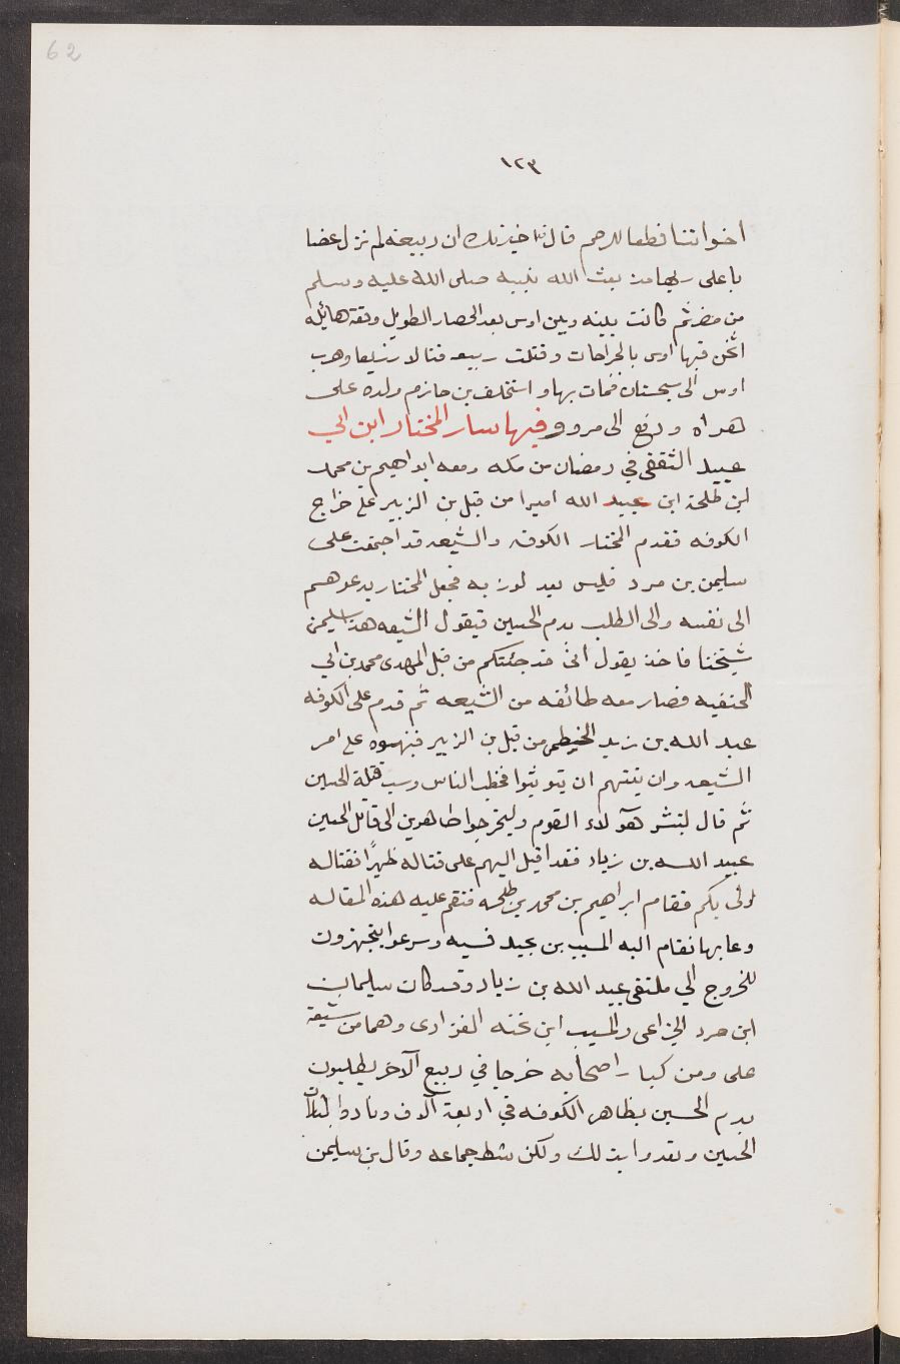 62
١٢٣
اخواننا قطعا للرحم قال قد اخبرتك ان ربيعه لم تزل غضا
با على ربها منذ بعث الله نبيه صلى الله عليه وسلم
من مضر ثم كانت بينه وبين اوس بعد الحصار الطويل وقعة هائله
اثخن فيها اوس بالجراحات وقتلت ربيعه قتالا وهرب
اوس الى سجستان فمات بها واستخلف بن حازم ولده على
هراه ورجع الى مرو وفيها سار المختار ابن ابي
عبيد الثقفي في رمضان من مكه ومعه ابراهيم بن محمد
ابن طلحة ابن عبيد الله اميرا من قبل بن الزبير على خراج
الكوفه فقدم المختار الكوفه والشيعه قد اجتمعت على
سليمن بن صرد فليس يعدلون به فجعل المختار يدعوهم
الى نفسه والى الطلب بدم الحسين فيقول الشيعه هذا سليمن
شيخنا فاخذ يقول انى قد جئتكم من قبل المهدى محمد بن ابي
الحنفيه فصار معه طائفه من الشيعه ثم قدم على الكوفه
عبد الله بن زيد الخطمى من قبل بن الزبير فنبهوه على امر
الشيعه وان نيتهم ان يتوثبوا فخطب الناس وسب قتلة الحسين
ثم قال ليبشر هآولاء القوم وليخرجوا ظاهرين الى قاتل الحسين
عبيد الله بن زياد فقد اقبل اليهم على قتاله ظهرًا فقتاله
اولى بكم فقام ابراهيم بن محمد بن طلحه فنقم عليه هذه المقاله
وعابها فقام اليه المسيب بن عبيد فسبه وسرعوا يتجهزون
للخروج الي ملتقى عبيد الله بن زياد وقد كان سليمان
ابن صرد الخزاعى والمسيب ابن نخبه الفزارى وهما من شيعة
على ومن كبار اصحابه خرجا في ربيع الآخر يطلبون
بدم الحسين بظاهر الكوفه في اربعة آلاف ونادوا لثارات
الحسين وتعدوا بذلك ولكن شط جماعه وقال بن سليمن